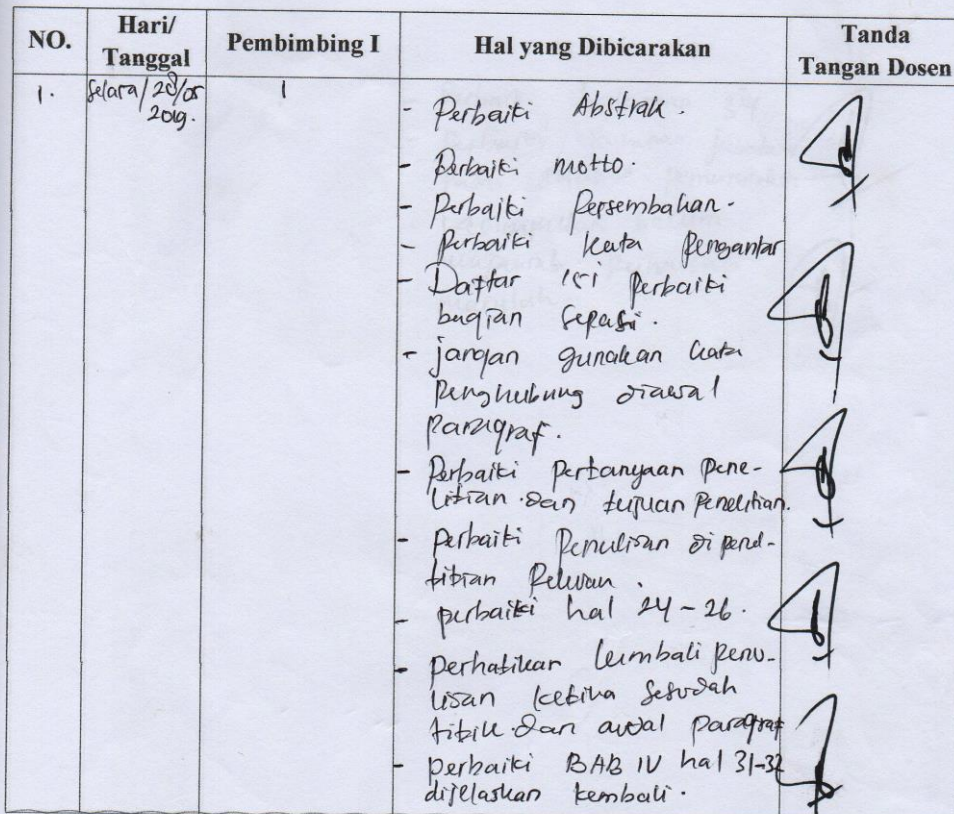 NO.
Hari/
Tanggal
Pembimbing I
Hal yang Dibicarakan
Tanda
Tangan Dosen
1.
Selasa/28/05
2019.
1
- Perbaiki Abstrak.
- Perbaiki motto.
- Perbaiki Persembahan.
- Perbaiki kata pengantar
- Daftar isi perbaiki
bagian sepasi.
- jangan gunakan kata
Penghubung diawal
Paragraf.
- Perbaiki pertanyaan pene-
litian dan tujuan Penelitian.
- perbaiki Penulisan di pene-
litian Relevan.
- perbaiki hal 24-26.
- perhatikan kembali penu-
lisan ketika sesudah
titik dan awal paragraf
- perbaiki BAB IV hal 31-32
dijelaskan kembali.